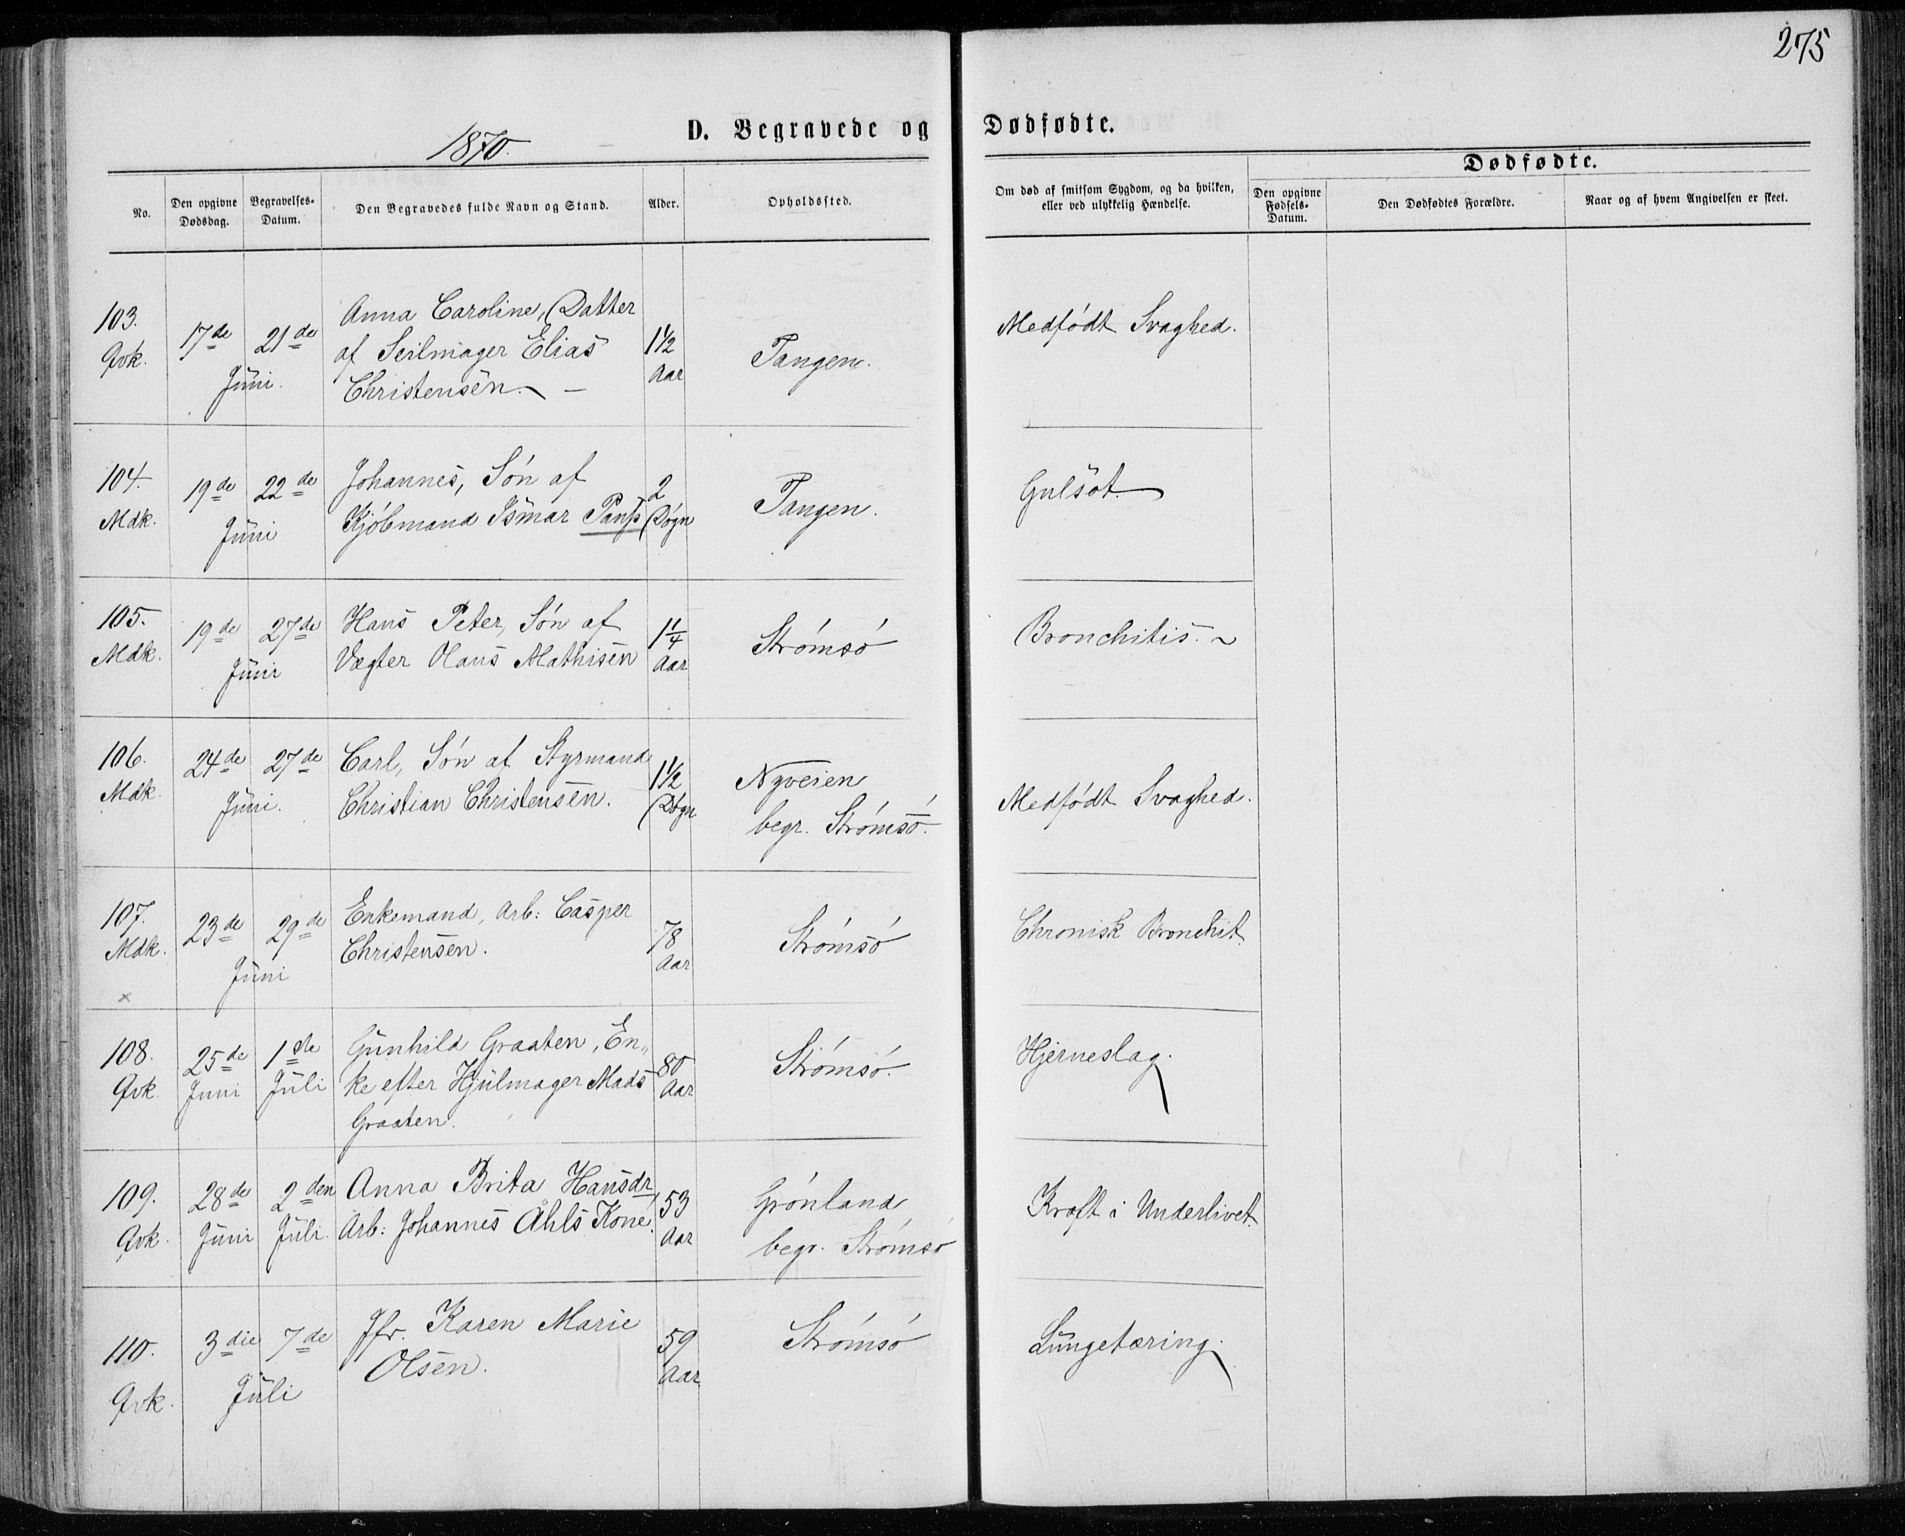 275
1870.
D. Begravede og Dødfødte.
Dødfødte.
No.
Den opgivne Dødsdag.
Begravelses-Datum.
Den Begravedes fulde Navn og Stand.
Alder.
Opholdssted.
Om død af smitsom Sygdom, og da hvilken,
eller ved ulykkelig Hændelse.
Den opgivne Fødsels-Datum.
Den Dødfødtes Forældre.
Naar og af hvem Angivelsen er skeet.
103. Qvk.
17de 21de Juni.
Anna Caroline, Datter
af Seilmager Elias
Christensen. —
1½ Aar
Tangen.
Medfødt Svaghed.
104. Mdk.
19de 22de Juni
Johannes, Søn af
Kjøbmand Ismar
2 Døgn
Tangen.
Gulsot.
105. Mdk.
19de 27de Juni
Hans Peter, Søn af
Vægter Olaus Mathisen
1¼ Aar
Strømsø
Bronchitis.
106. Mdk.
24de 27de Juni.
Carl, Søn af Styrmand
Christian Christensen.
1½ Døgn
Nyveien
begr. Strømsø.
Medfødt Svaghed.
107. Mdk. x
23de 29de Juni
Enkemand, Arb: Casper
Christensen.
78 Aar
Strømsø
Chronisk Bronchit.
108. Qvk.
25de Juni 1ste Juli
Gunhild Graaten, En„
ke efter Hjulmager Mads
Graaten.
80 Aar
Strømsø.
Hjerneslag.
109. Qvk.
28de Juni 2den Juli.
Anna Brita Hansdr
Arb: Johannes Åhls Kone.
53 Aar
Grønland
begr. Strømsø
Kræft i Underlivet.
110. Qvk.
3die 7de Juli
Jfr. Karen Marie
Olsen.
59 Aar
Strømsø
Lungetæring.